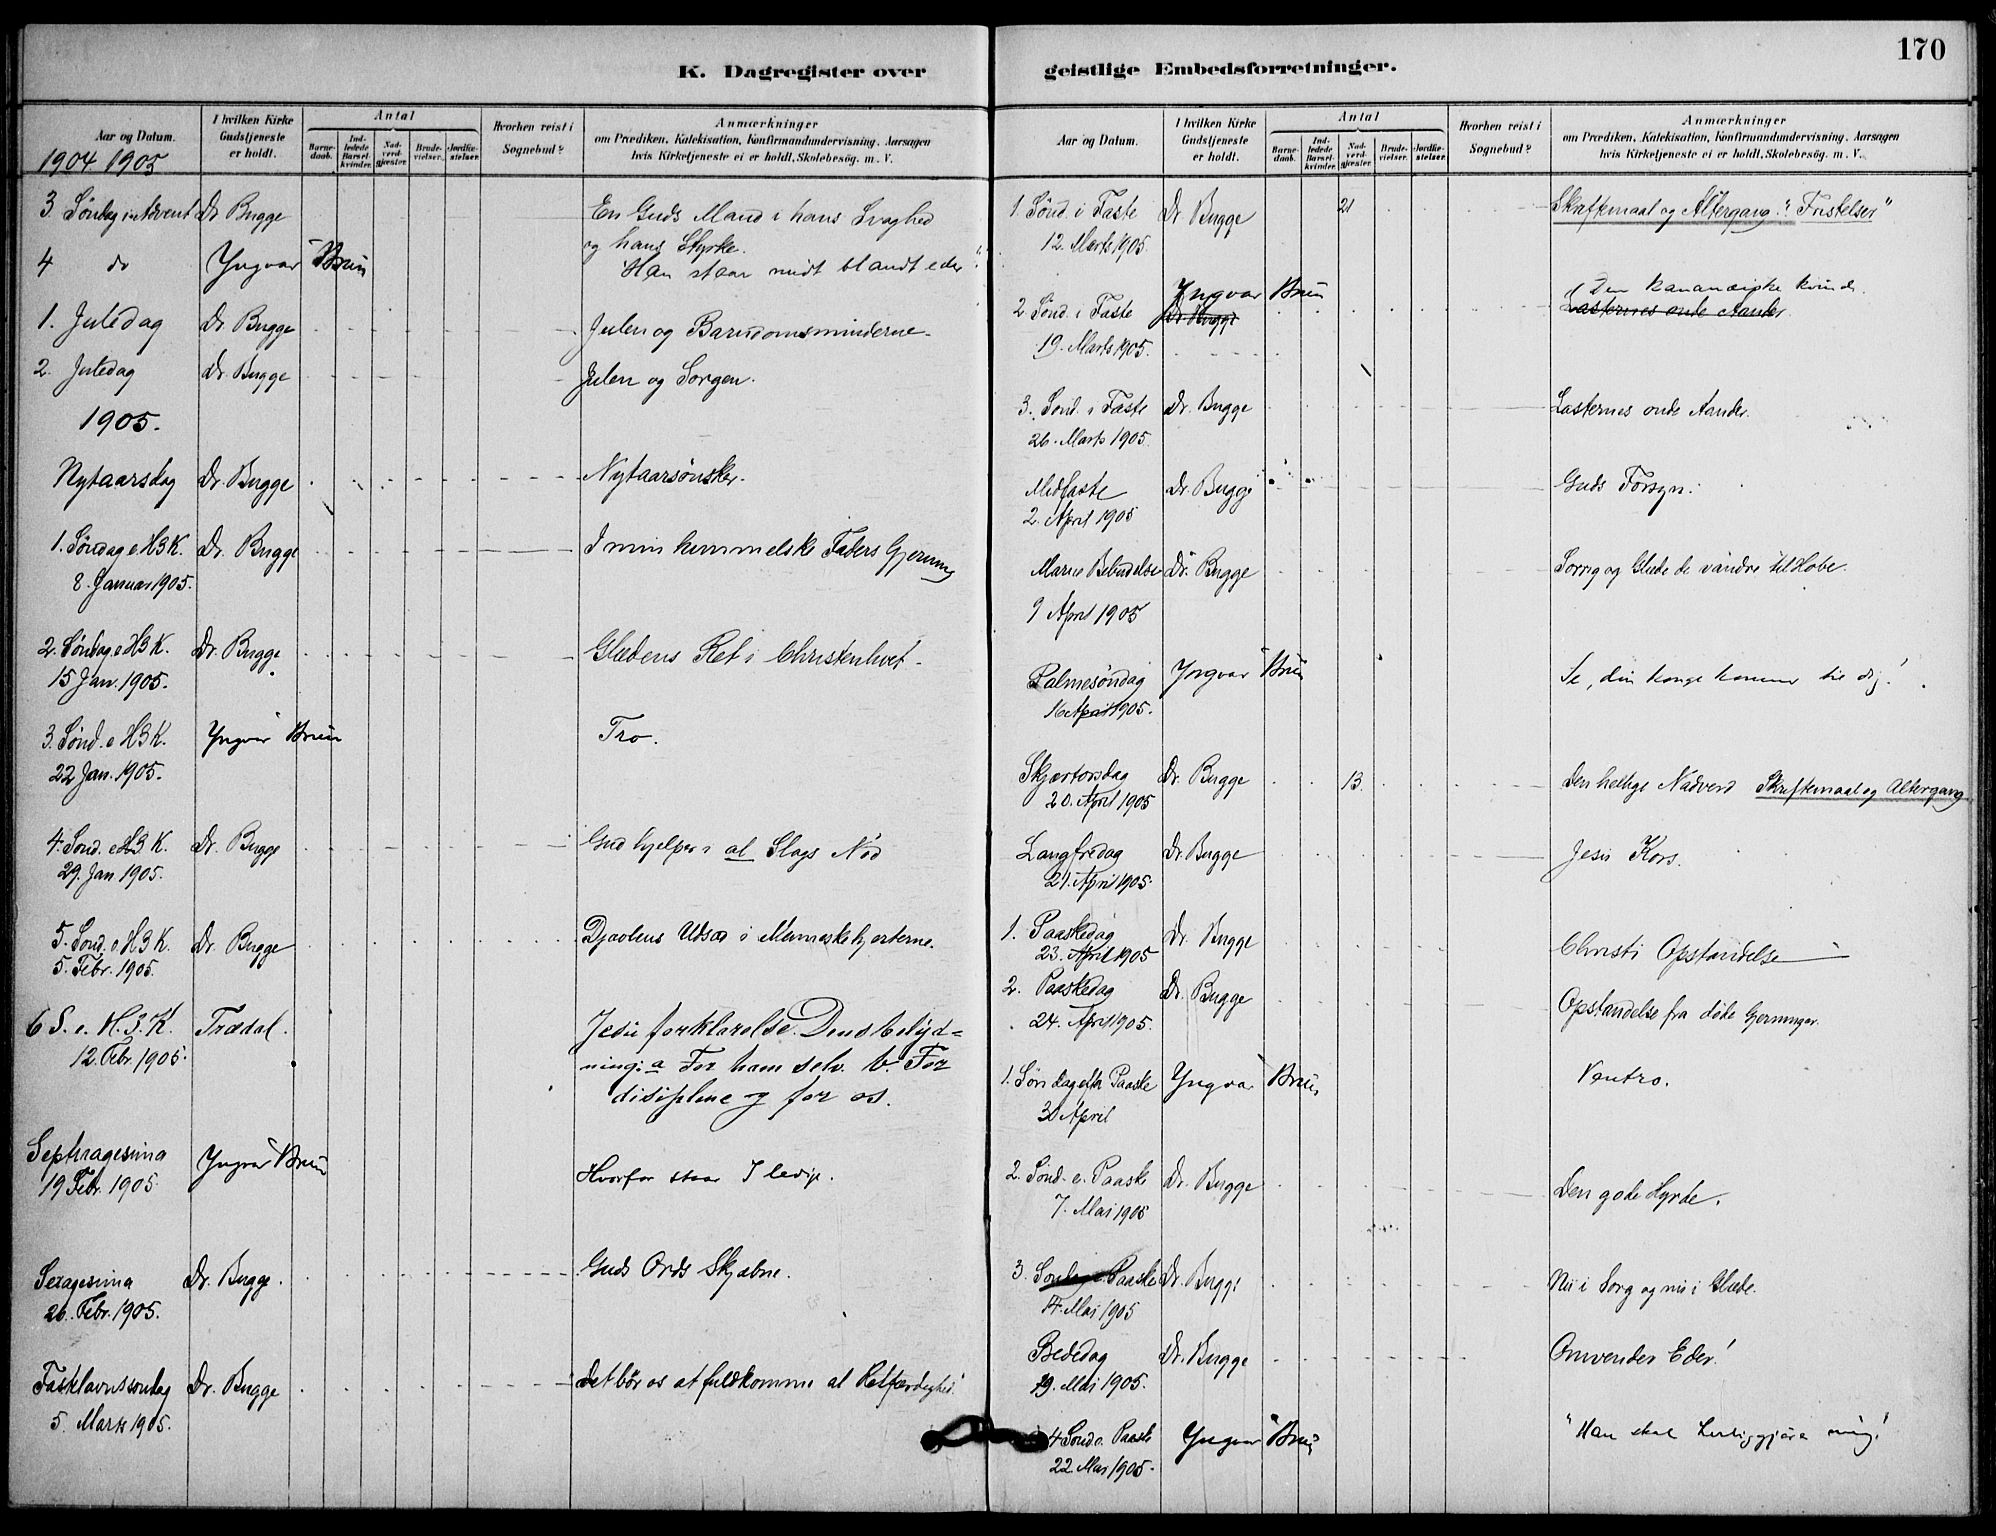 170
K. Dagregister over
geistlige Embedsforretninger.
Aar og Datum.
I hvilken Kirke Gudstjeneste er holdt.
Antal
Barnedaab.
Indledede Barselkvinder.
Nadverdgjester.
Brudevielser.
Jordfæstelser.
Hvorhen reist i Sognebud?
Anmærkninger
om Prædiken, Katekisation, Konfirmandundervisning, Aarsagen
hvis Kirketjeneste ei er holdt, Skolebesøg. m. V.
1904. 1905
3. Søndag i Advent Dr Bugge En Guds Mand i hans Svaghed
og hans Styrke.
4 do Yngvar Brun Han staar midt blandt eder
1. Juledag Dr. Bugge Julen og Barndomsminderne
2. Juledag Dr. Bugge Julen og Sorgen.
1905.
Nytaarsdag Dr. Bugge Nytaarsønsker.
1. Søndag e H3K. Dr. Bugge I min himmelske Faders Gjerning
8. Januar 1905.
2. Søndag e H3K. Dr. Bugge Glædens Ret i Christenlivet
15 Jan. 1905.
3. Sønd. e H3K. Yngvar Brun Tro.
22 Jan. 1905.
4. Sønd. e H3K. Dr. Bugge Gud hjelper i al Slags Nød
29. Jan 1905.
5. Sønd. e. H3K. Dr. Bugge Djævlens Udsæd i Menneskehjerterne.
5. Febr. 1905.
6 S. e. H. 3. K. Trædal. Jesu forklarelse. Dens betyd-
12. Febr. 1905. ning: a For ham selv. b. For
disiplene og for os.
Septuagesima Yngvar Brun Hvorfor staar I ledige.
19 Febr. 1905
Sexagesima Dr. Bugge. Guds Ords Skjæbne.
26. Febr. 1905.
Fastelavnssøndag Dr. Bugge "Det bør os at fuldkomme al Retfærdighed."
5. Marts 1905.
Aar og Datum.
I hvilken Kirke Gudstjeneste er holdt.
Antal
Barnedaab.
Indledede Barselkvinder.
Nadverdgjester.
Brudevielser.
Jordfæstelser.
Hvorhen reist i Sognebud?
Anmærkninger
om Prædiken, Katekisation, Konfirmandundervisning, Aarsagen
hvis Kirketjeneste ei er holdt, Skolebesøg. m. V.
1. Sønd. i Faste Dr Bugge 21 Skriftemaal og Altergang. "Fristelser"
12. Marts 1905.
Yngvar Brun Den kananæiske kvinde.
2 Sønd. i Faste Dr. Bugge Lasternes onde Aander
19. Marts 1905.
3. Sønd. i Faste Dr. Bugge Lasternes onde Aander.
26. Marts 1905.
Midfaste Dr. Bugge Guds Forsyn.
2. April 1905
Mariæ Bebudelse Dr. Bugge Sorrig og Glæde de vandre til Hobe.
9 April 1905
Palmesøndag Yngvar Brun Se, din konge kommer til dig!
16 April 1905.
Skjærtorsdag Dr. Bugge 13. Den hellige Nadverd Skriftemaal og Altergang
20. April 1905
Langfredag Dr. Bugge Jesu Kors.
21. April 1905.
1. Paaskedag Dr. Bugge Christi Opstandelse
23. April 1905
2. Paaskedag Dr. Bugge Opstandelse fra døde Gjerninger.
24. April 1905.
1. Søndag eft Paaske Yngvar Brun Vantro.
30 April
2. Sønd. e. Paaske Dr. Bugge Den gode Hyrde.
7. Mai 1905
3. Søndag e. Paaske Dr. Bugge Nu i Sorg og nu i Glæde.
14. Mai 1905
Bededag Dr. Bugge Omvender Eder!
19. Mai 1905.
4 Sønd e. Paaske Yngvar Brun "Han skal herliggjøre mig!"
22. Mai 1905.